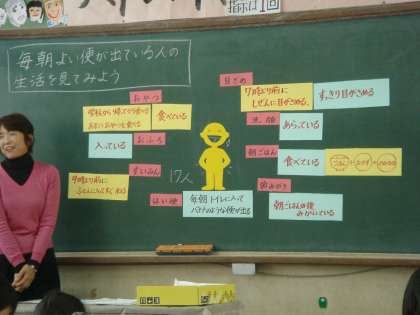 指标は1回
毎朝よい便が出ている人の
生活を見てみよう
おやつ
学校から帰ってすぐ食べる
食べている
入っている
おふろ
すいみん
9時より前に
17人
はい便
毎朝トイレに入って
バナナのような便が出る
目ざめ
7時より前に
しぜんに目がさめる。
すっきり目がさめる
洗顔
あらっている
朝ごはん
食べている
ごはん+おかず+
歯みがき
朝ごはんの後
みがいている